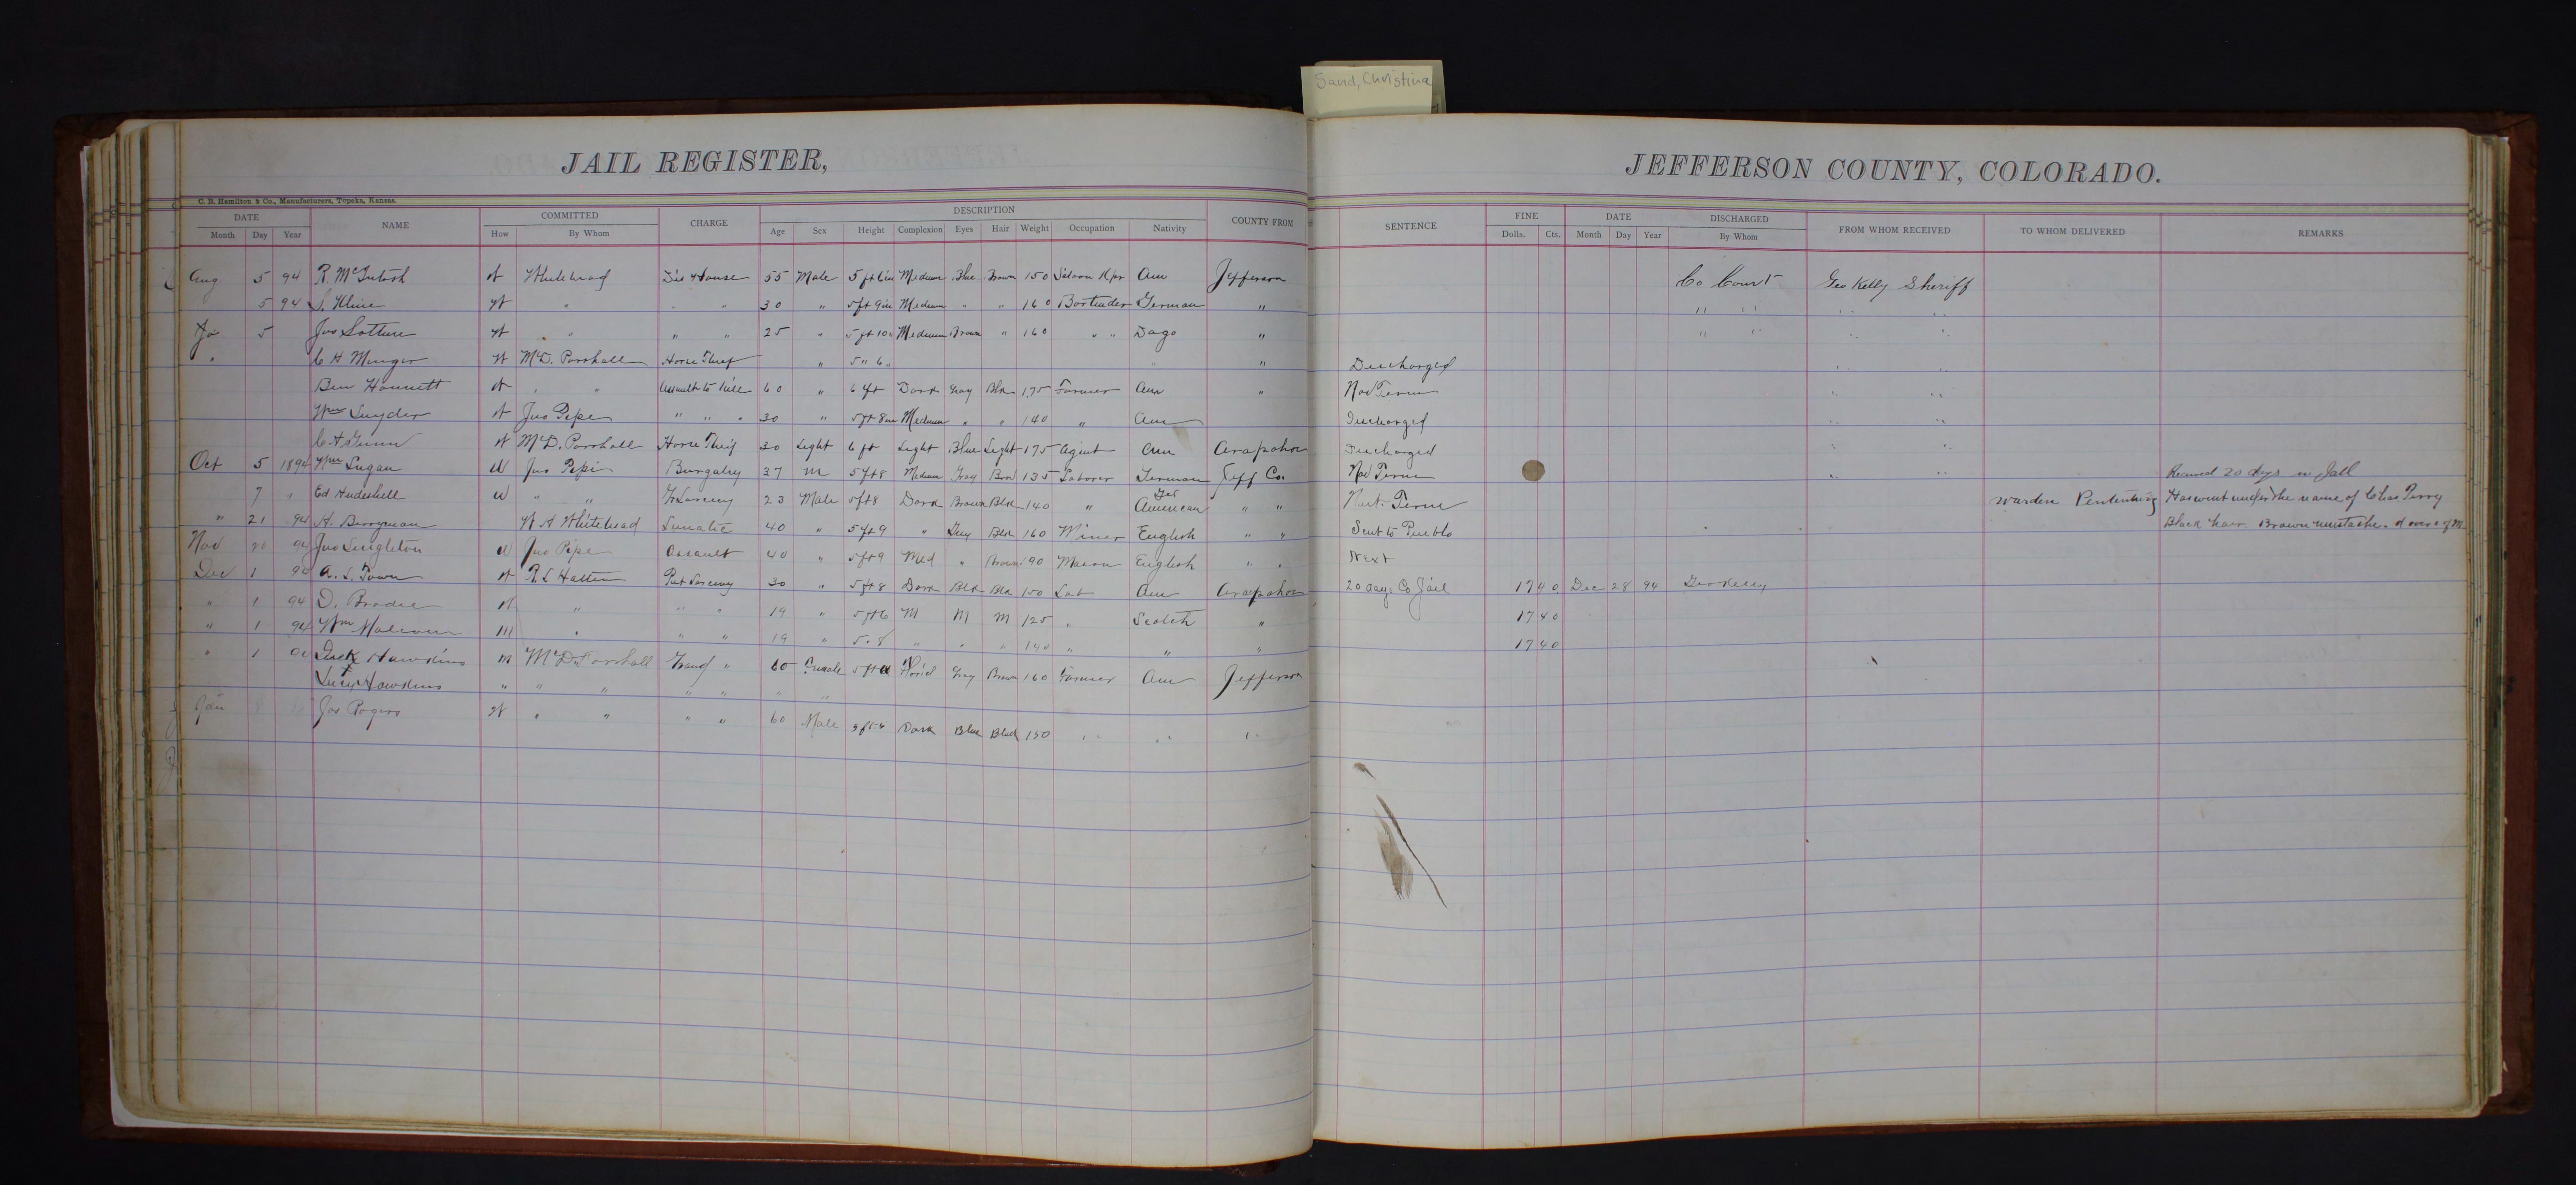 Sand, Christina
JAIL REGISTER,
JEFFERSON COUNTY, COLORADO.
C. B. Hamilton & Co., Manufacturers, Topeka, Kansas.
DATE NAME COMMITTED CHARGE DESCRIPTION COUNTY FROM SENTENCE FINE DATE DISCHARGED FROM WHOM RECEIVED TO WHOM DELIVERED REMARKS
Month Day Year How By Whom Age Sex Height Complexion Eyes Hair Weight Occupation Nativity Dolls. Cts. Month Day Year By Whom
Aug 5 94 R. McIntosh Whitehead Dis House 55 Male 5 ft 6 in Medium Blue Brown 150 Saloon Kpr Am Jefferson Co Court Geo Kelly Sheriff
5 94 S. Kline " " " 30 " 5 ft 9 in Medium " " 160 Bartender German " " " " "
5 Jos " " " " 25 " 5 ft 10 " Medium Brown " 160 " " Dago " " " " "
" C H McD. Parshall Horse Thief " 5 " 6 " " " Discharged " "
Ben " " Assault to Kill 60 " 6 ft Dark Gray Blk 175 Farmer Am " Nov Term " "
Wm Snyder Jno Pipe " " " 30 " 5 ft 8 in Medium " " 140 " Am Discharged " "
McD. Parshall Horse Thief 30 Light 6 ft Light Blue Light 175 Agent Am Arapahoe Discharged " "
Oct 5 1894 Wm Jno Pipe Burgalry 37 M 5 ft 8 Medium Gray Brn 135 Laborer German Jeff Co. Nov Term " " 20 days in Jail
7 " Ed " " Gr Larceny 23 Male 5 ft 8 Dark Brown Blk 140 American " " Term Warden under the name of Chas Perry
" 21 94 A. Berryman W A Whitehead Lunatic 40 " 5 ft 9 " Gray Blk 160 Miner English " " Sent to Pueblo " Black hair. Brown mustache.
Nov 20 94 Jno Singleton Jno Pipe Assault 40 " 5 ft 9 Med " Brown 190 Mason English " " Next
Dec 1 94 A. S. Town Pet Larceny 30 " 5 ft 8 Dark Blk Blk 150 Lab Am Arapahoe 20 days Co Jail 17 40 Dec 28 94 Geo Kelly
" 1 94 D. Brodie " " " 19 " 5 ft 6 M M M 125 " Scotch " 17 40
" 1 94 Wm " " " 19 " 5 " 8 " " " 140 " " " 17 40
" 1 Dick Hawkins M McD. Parshall Grand " 60 Female 5 ft Gray Brown 160 Farmer Am Jefferson
Lucy Hawkins " " " " " " "
Jan 8 Jos Rogers " " " " 60 Male Dark Blue Black 150 " " " " "